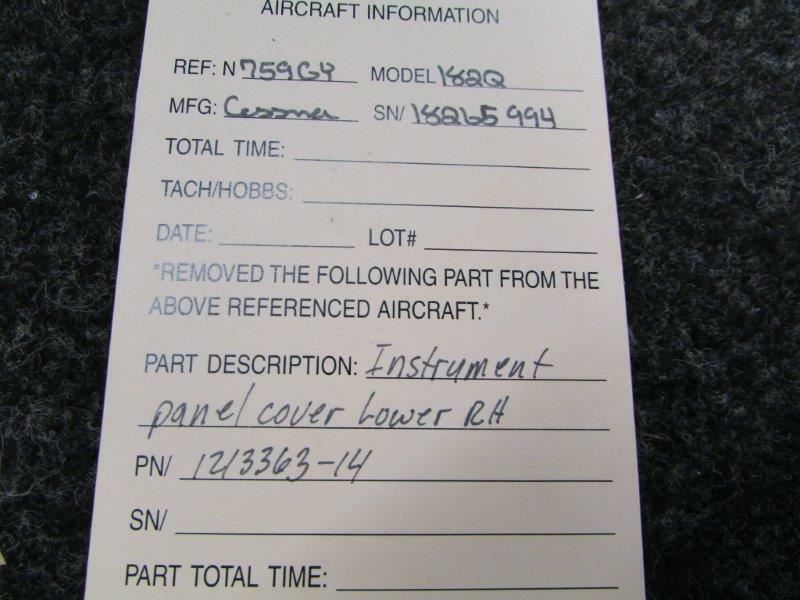 AIRCRAFT INFORMATION
REF: N 759GY MODEL 182Q
MFG: Cessna SN/ 18265994
TOTAL TIME:
TACH/HOBBS:
DATE: LOT#
*REMOVED THE FOLLOWING PART FROM THE
ABOVE REFERENCED AIRCRAFT.*
PART DESCRIPTION: Instrument
panel cover Lower RH
PN/ 1213363-14
SN/
PART TOTAL TIME: